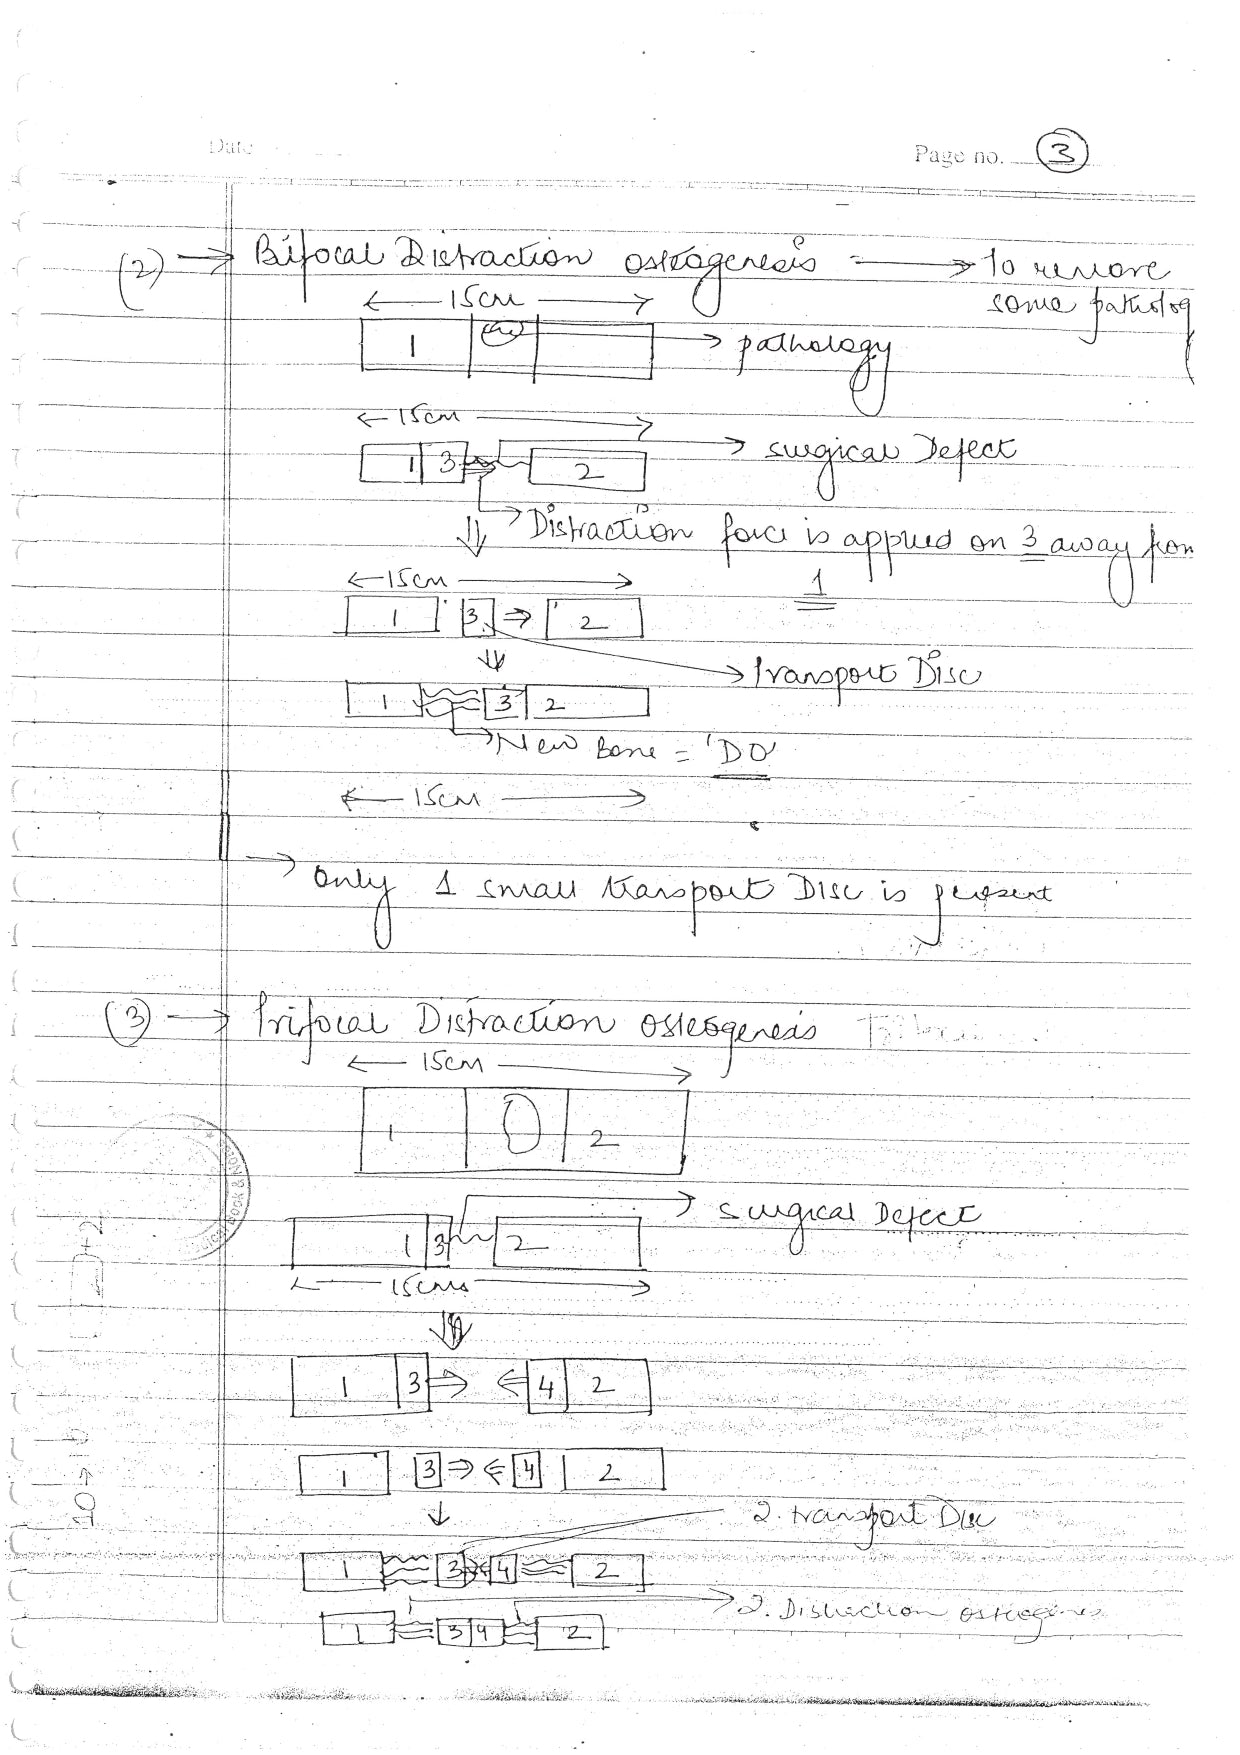 Date
Page no. 3
(2) → Bifocal Distraction osteogenesis → To remove
some patholog
← 15cm →
1
→ pathology
← 15cm →
1 3 2
→ surgical Defect
→ Distraction force is applied on 3 away from
1
← 15cm →
1 3 ⇒ 2
→ Transport Disc
1 3 2
→ New Bone = 'DO'
← 15cm →
→ Only 1 small transport Disc is present
(3) → Trifocal Distraction Osteogenesis
← 15cm →
1 2
→ surgical Defect
1 3 2
← 15cms →
1 3 ⇒ ⇐ 4 2
1 3 ⇒ ⇐ 4 2
2. transport Disc
1 3 4 2
→ 2. Distraction osteogenes
1 3 4 2